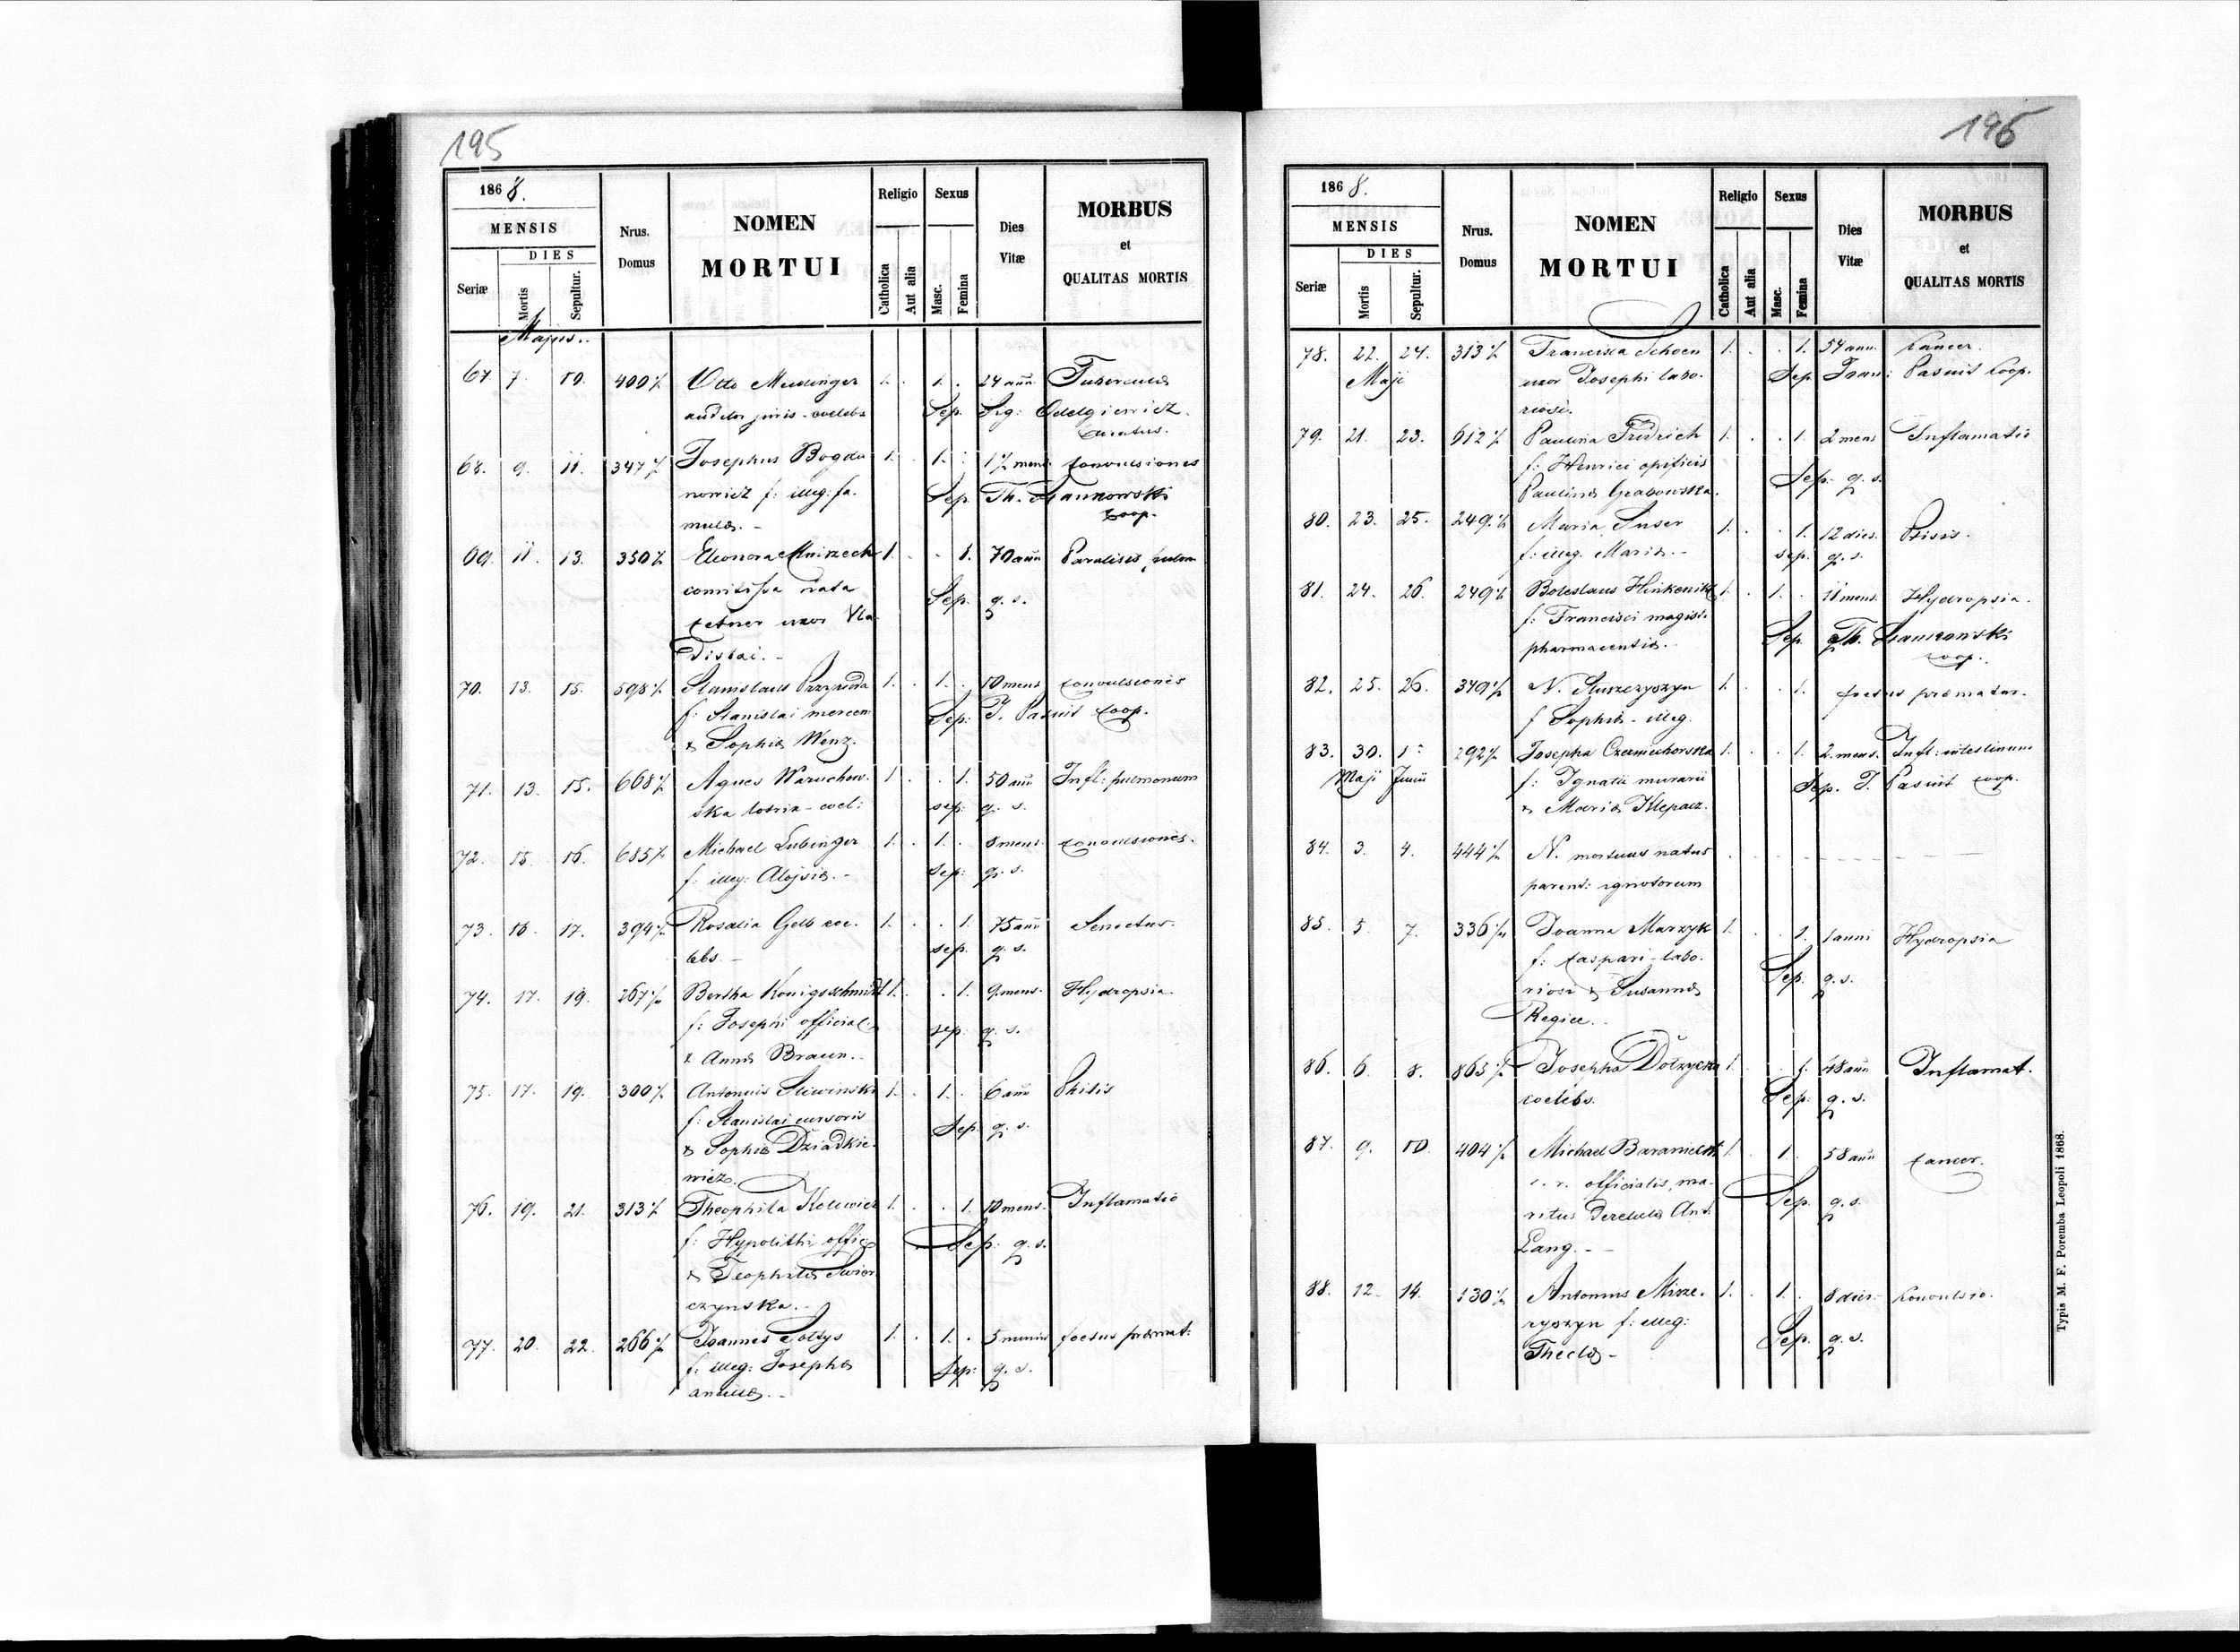 195
1868.
MENSIS
DIES
Seriæ
Mortis
Sepultur.
Nrus. Domus
NOMEN
MORTUI
Religio
Catholica
Aut alia
Sexus
Masc.
Femina
Dies Vitæ
MORBUS
et
QUALITAS MORTIS
Majus.
67. 7. 10. 400 Otto 1. . 1. . 24 ann
auditor juris - coelebs Sep.
68. 9. 11. 347 Josephus Bogda 1. . 1. . mens convulsiones
nowicz f: illeg: fa. Sep. Th.
mulæ. - Coop.
69. 11. 13. 350 Eleonora Mniszech 1. . . 1. 70 ann Paralisis pulm
comitissa nata Sep. q. s.
Cetner uxor Vla
dislai. -
70. 13. 15. 598 Stanislaus 1. . 1. . 10 mens convulsiones
f: Stanislai mercen Sep: J. Pasuit Coop.
& Sophiæ Wenz.
71. 13. 15. 668 Agnes Waruchow. 1. . . 1. 50 ann Infl: pulmonum
ska lotrix - coel: sep: q. s.
72. 15. 16. 685 Michael Lubinger 1. . 1. . 8 mens convulsiones.
f: illeg: Alojsiæ. - sep: q. s.
73. 16. 17. 394 Rosalia Gelb coe. 1. . . 1. 75 ann Senectus.
lebs - sep. q. s.
74. 17. 19. 267 Bertha Königsschmidt 1. . . 1. 9 mens. Hydropsia.
f: Josephi official: sep. q. s.
& Annæ Braun.
75. 17. 19. 300 Antonius Sliwinski 1. . 1. . 6 ann Phitis
f: Stanislai cursoris Sep. q. s.
& Sophiæ Dziadkie-
wicz.
76. 19. 21. 313 Theophila 1. . . 1. 10 mens. Inflamatio
f: Hypolithi offic Sep. q. s.
& Teophilæ Swier
czynska. -
77. 20. 22. 266 Joannes Soltys 1. . 1. . 5 mensis foetus præmat:
f. illeg: Josephæ Sep: q. s.
ancillæ. -
196
1868.
MENSIS
DIES
Seriæ
Mortis
Sepultur.
Nrus. Domus
NOMEN
MORTUI
Religio
Catholica
Aut alia
Sexus
Masc.
Femina
Dies Vitæ
MORBUS
et
QUALITAS MORTIS
78. 22. 24. 313 Francisca Schoen 1. . . 1. 54 ann. Cancer.
Maji uxor Josephi labo. Sep Pasuit Coop.
riosi.
79. 21. 23. 612 Paulina Fridrich 1. . . 1. 2 mens Inflamatio
f: Henrici opificis Sep. q. s.
Paulinæ Grabowska.
80. 23. 25. 249. Maria Suser 1. . . 1. 12 dies.
f: illeg. Mariæ. - sep. q. s.
81. 24. 26. 249 Boleslaus 1. . 1. . 11 mens. Hydropsia.
f: Francisci magist. Sep. Th.
pharmacentiæ. - coop.
82. 25. 26. 349 N. 1. . . 1. foetus præmatur.
f Sophiæ - illeg.
83. 30. 1. 292 Josepha 1. . . 1. 2. mens. Infl: intestinum
Maji Junii f: Ignatii murarii Sep. J. Pasuit coop.
& Mariæ Klepacz.
84. 3. 4. 444 N. mortuus natus
parent: ignotorum
85. 5. 7. 336 Joanna Marzyk 1. . . 1. 1 anni Hydropsia
f: Caspari - labo. Sep. q. s.
riosi & Susannæ
Regiec.
86. 6. 8. 865 Josepha Dolzycka 1. . . 1. 48 ann Inflamat.
coelebs. Sep. q. s.
87. 9. 10. 404 Michael 1. . 1. . 58 ann Cancer.
officialis, ma- Sep. q. s.
ritus Ant.
Lang. -
88. 12. 14. 130 Antonius Misze. 1. . 1. . 8 dies. Convulsio.
ryszyn f: illeg: Sep. q. s.
Theclæ -
Typis M. F. Poremba Leopoli 1868.